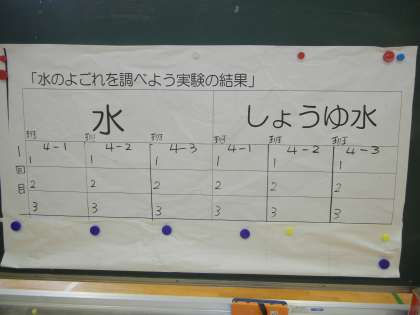 「水のよごれを調べよう実験の結果」
水 しょうゆ水
4-1 4-2 4-3 4-1 4-2 4-3
1回目
1 1 1 1 1 1
2 2 2 2 2 2
3 3 3 3 3 3